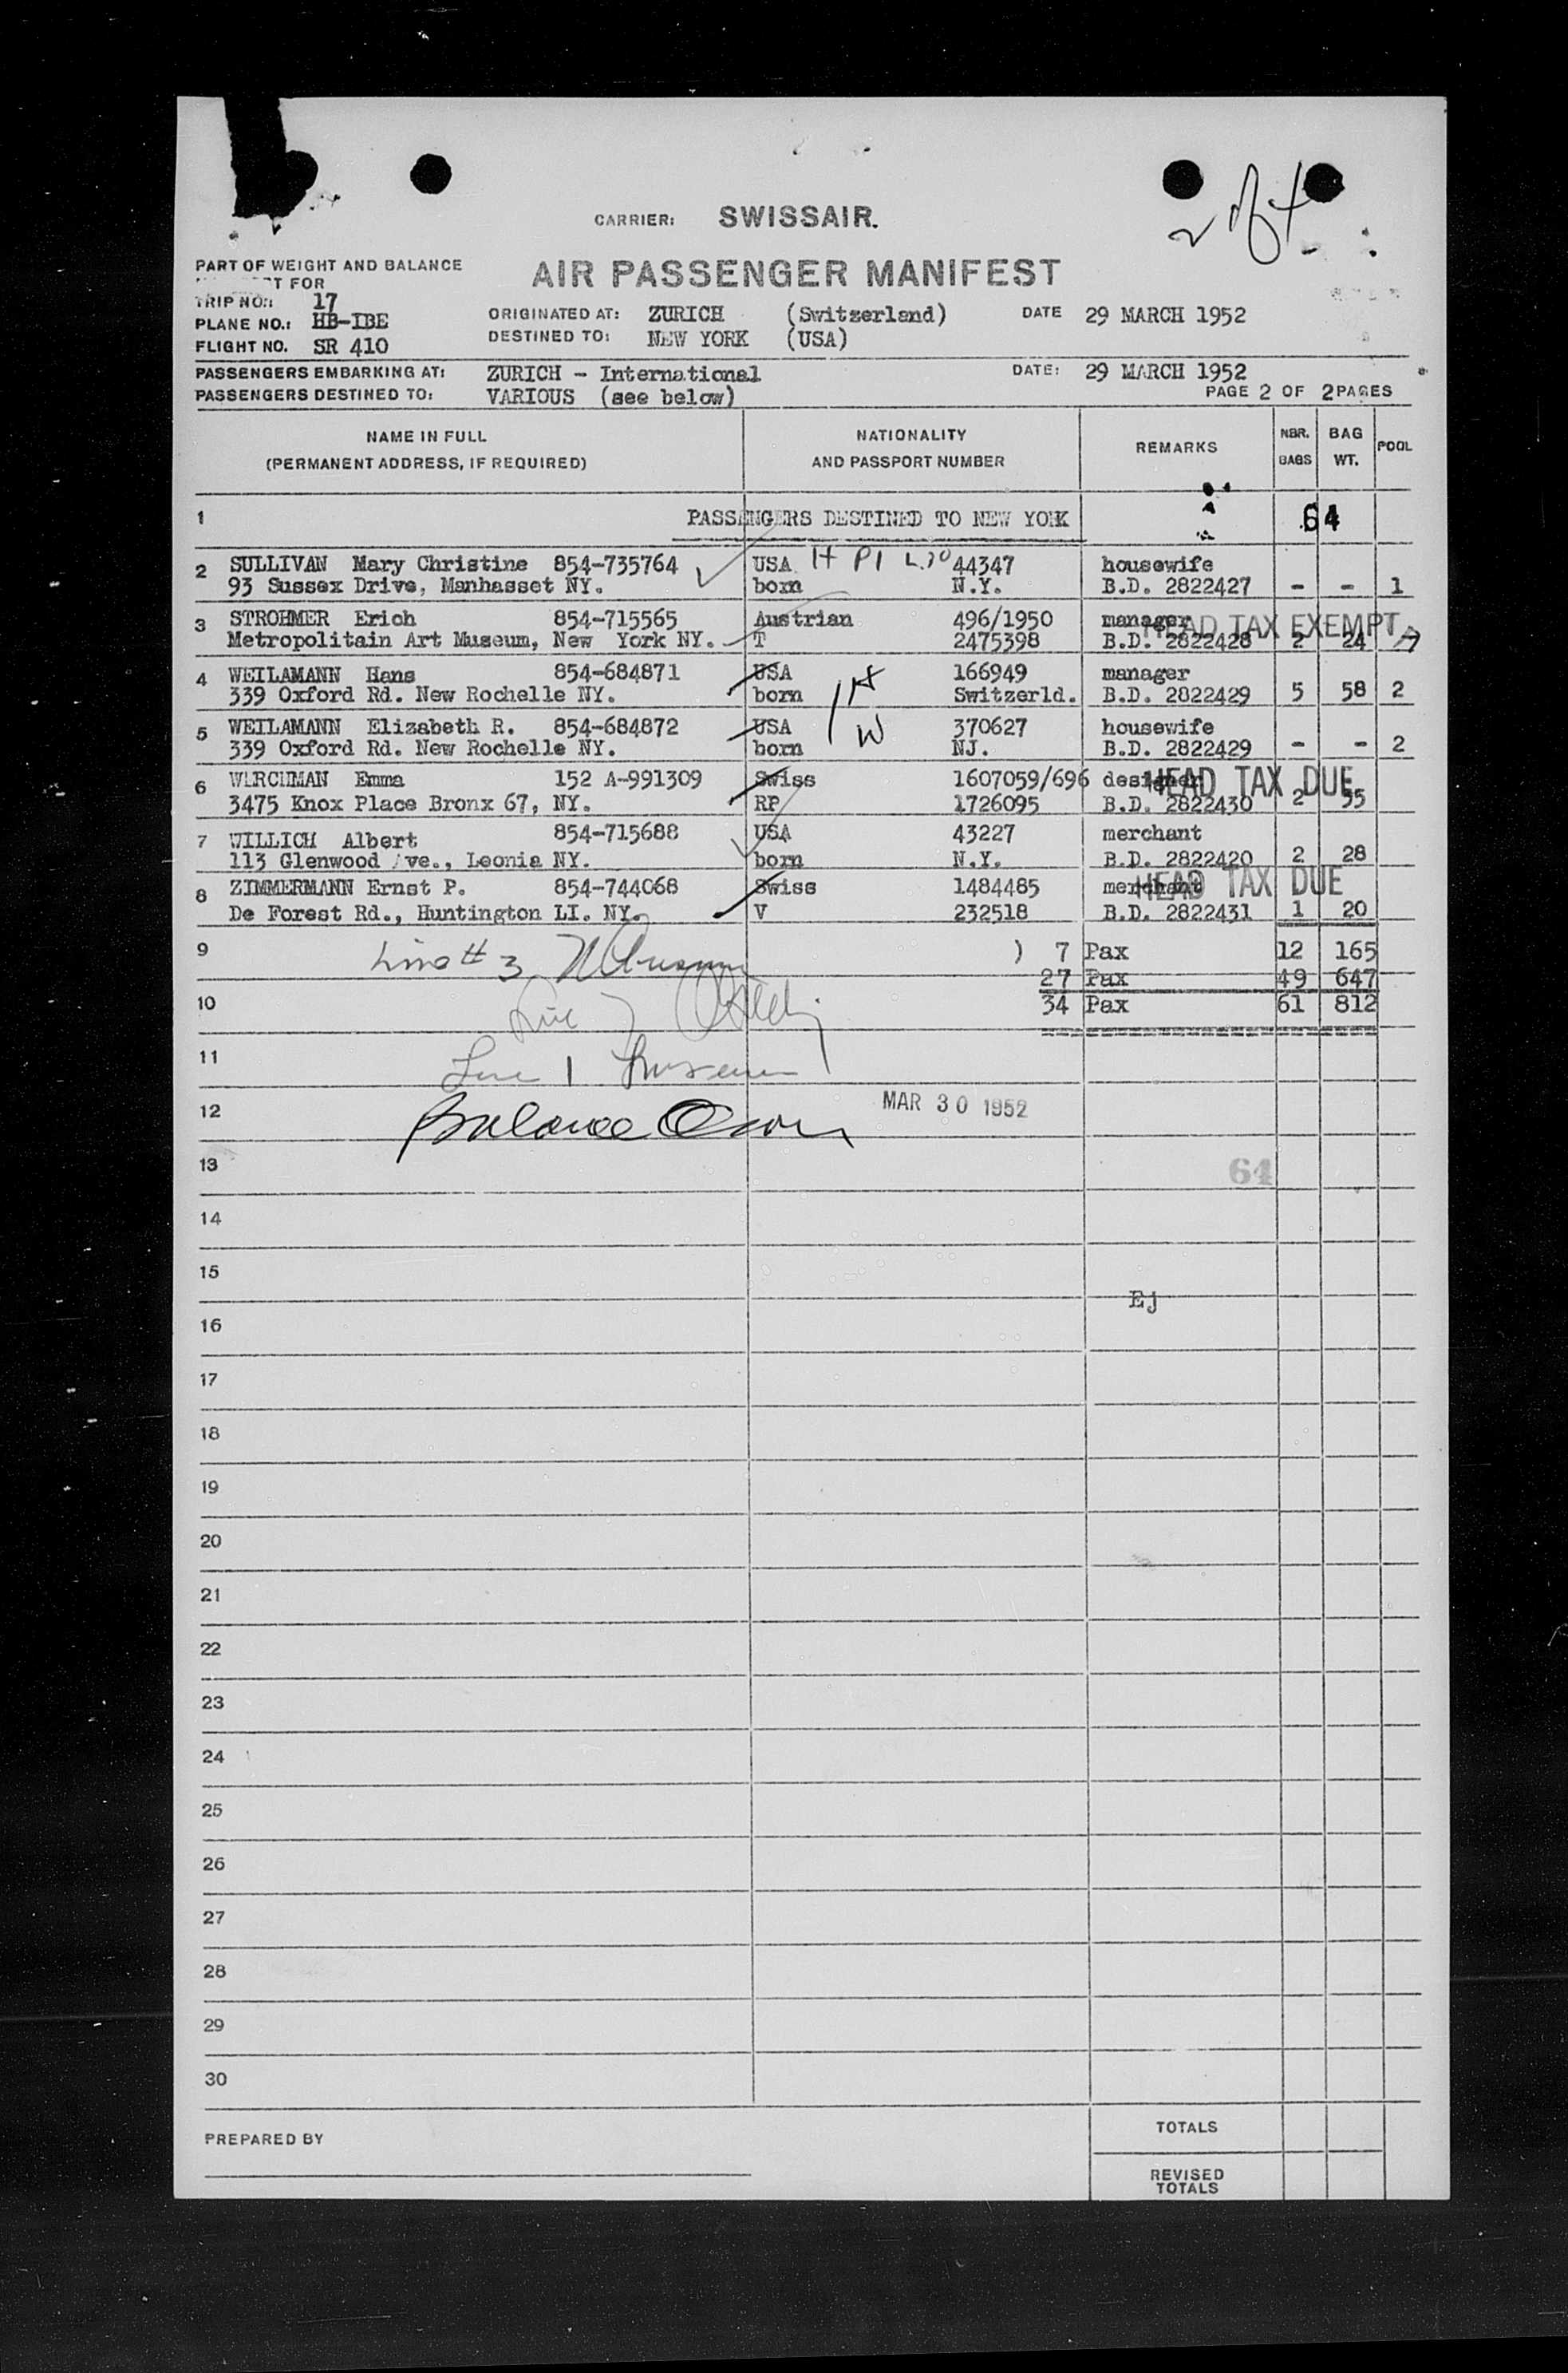 2 of 4
CARRIER: SWISSAIR.
PART OF WEIGHT AND BALANCE
T FOR
AIR PASSENGER MANIFEST
TRIP NO: 17
PLANE NO.: HB-IBE
FLIGHT NO. SR 410
ORIGINATED AT: ZURICH (Switzerland) DATE 29 MARCH 1952
DESTINED TO: NEW YORK (USA)
PASSENGERS EMBARKING AT: ZURICH - International DATE: 29 MARCH 1952
PASSENGERS DESTINED TO: VARIOUS (see below) PAGE 2 OF 2 PAGES
NAME IN FULL
(PERMANENT ADDRESS, IF REQUIRED)
NATIONALITY
AND PASSPORT NUMBER
REMARKS
NBR. BAGS
BAG WT.
POOL
1 PASSENGERS DESTINED TO NEW YORK 64
2 SULLIVAN Mary Christine 854-735764 USA H P1 44347 housewife
93 Sussex Drive, Manhasset NY. born N.Y. B.D. 2822427 - - 1
3 STROHMER Erich 854-715565 Austrian 496/1950 manager HEAD TAX EXEMPT
Metropolitain Art Museum, New York NY. T 2475398 B.D. 2822428 2 24
4 WEILAMANN Hans 854-684871 USA H 166949 manager
339 Oxford Rd. New Rochelle NY. born Switzerld. B.D. 2822429 5 58 2
5 WEILAMANN Elizabeth R. 854-684872 USA W 370627 housewife
339 Oxford Rd. New Rochelle NY. born NJ. B.D. 2822429 - - 2
6 WIRCHMAN Emma 152 A-991309 Swiss 1607059/696 designer HEAD TAX DUE
3475 Knox Place Bronx 67, NY. RP 1726095 B.D. 2822430 2 35
7 WILLICH Albert 854-715688 USA 43227 merchant
113 Glenwood Ave., Leonia NY. born N.Y. B.D. 2822420 2 28
8 ZIMMERMANN Ernst P. 854-744068 Swiss 1484485 merchant HEAD TAX DUE
De Forest Rd., Huntington LI. NY. V 232518 B.D. 2822431 1 20
9 Line # 3 ) 7 Pax 12 165
27 Pax 49 647
10 Line 34 Pax 61 812
11 Line 1
12 Balance MAR 30 1952
13 64
14
15
Ej
16
17
18
19
20
21
22
23
24
25
26
27
28
29
30
PREPARED BY
TOTALS
REVISED
TOTALS